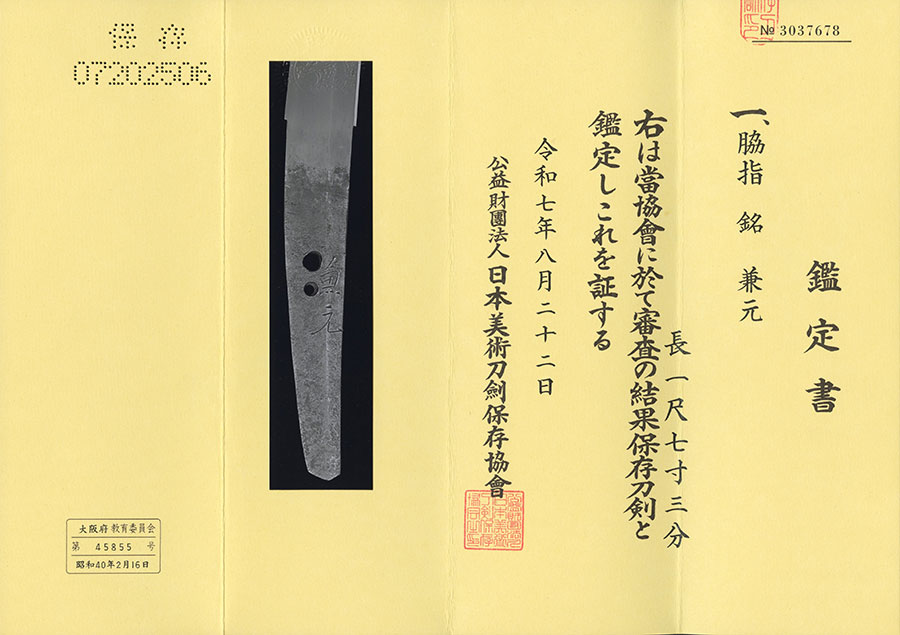 № 3037678
鑑定書
一、脇指 銘 兼元
長一尺七寸三分
右は當協會に於て審査の結果保存刀剣と
鑑定しこれを証する
令和七年八月二十二日
公益財團法人 日本美術刀劍保存協會
兼元
保存
07202506
大阪府教育委員会
第 45855 号
昭和40年2月16日